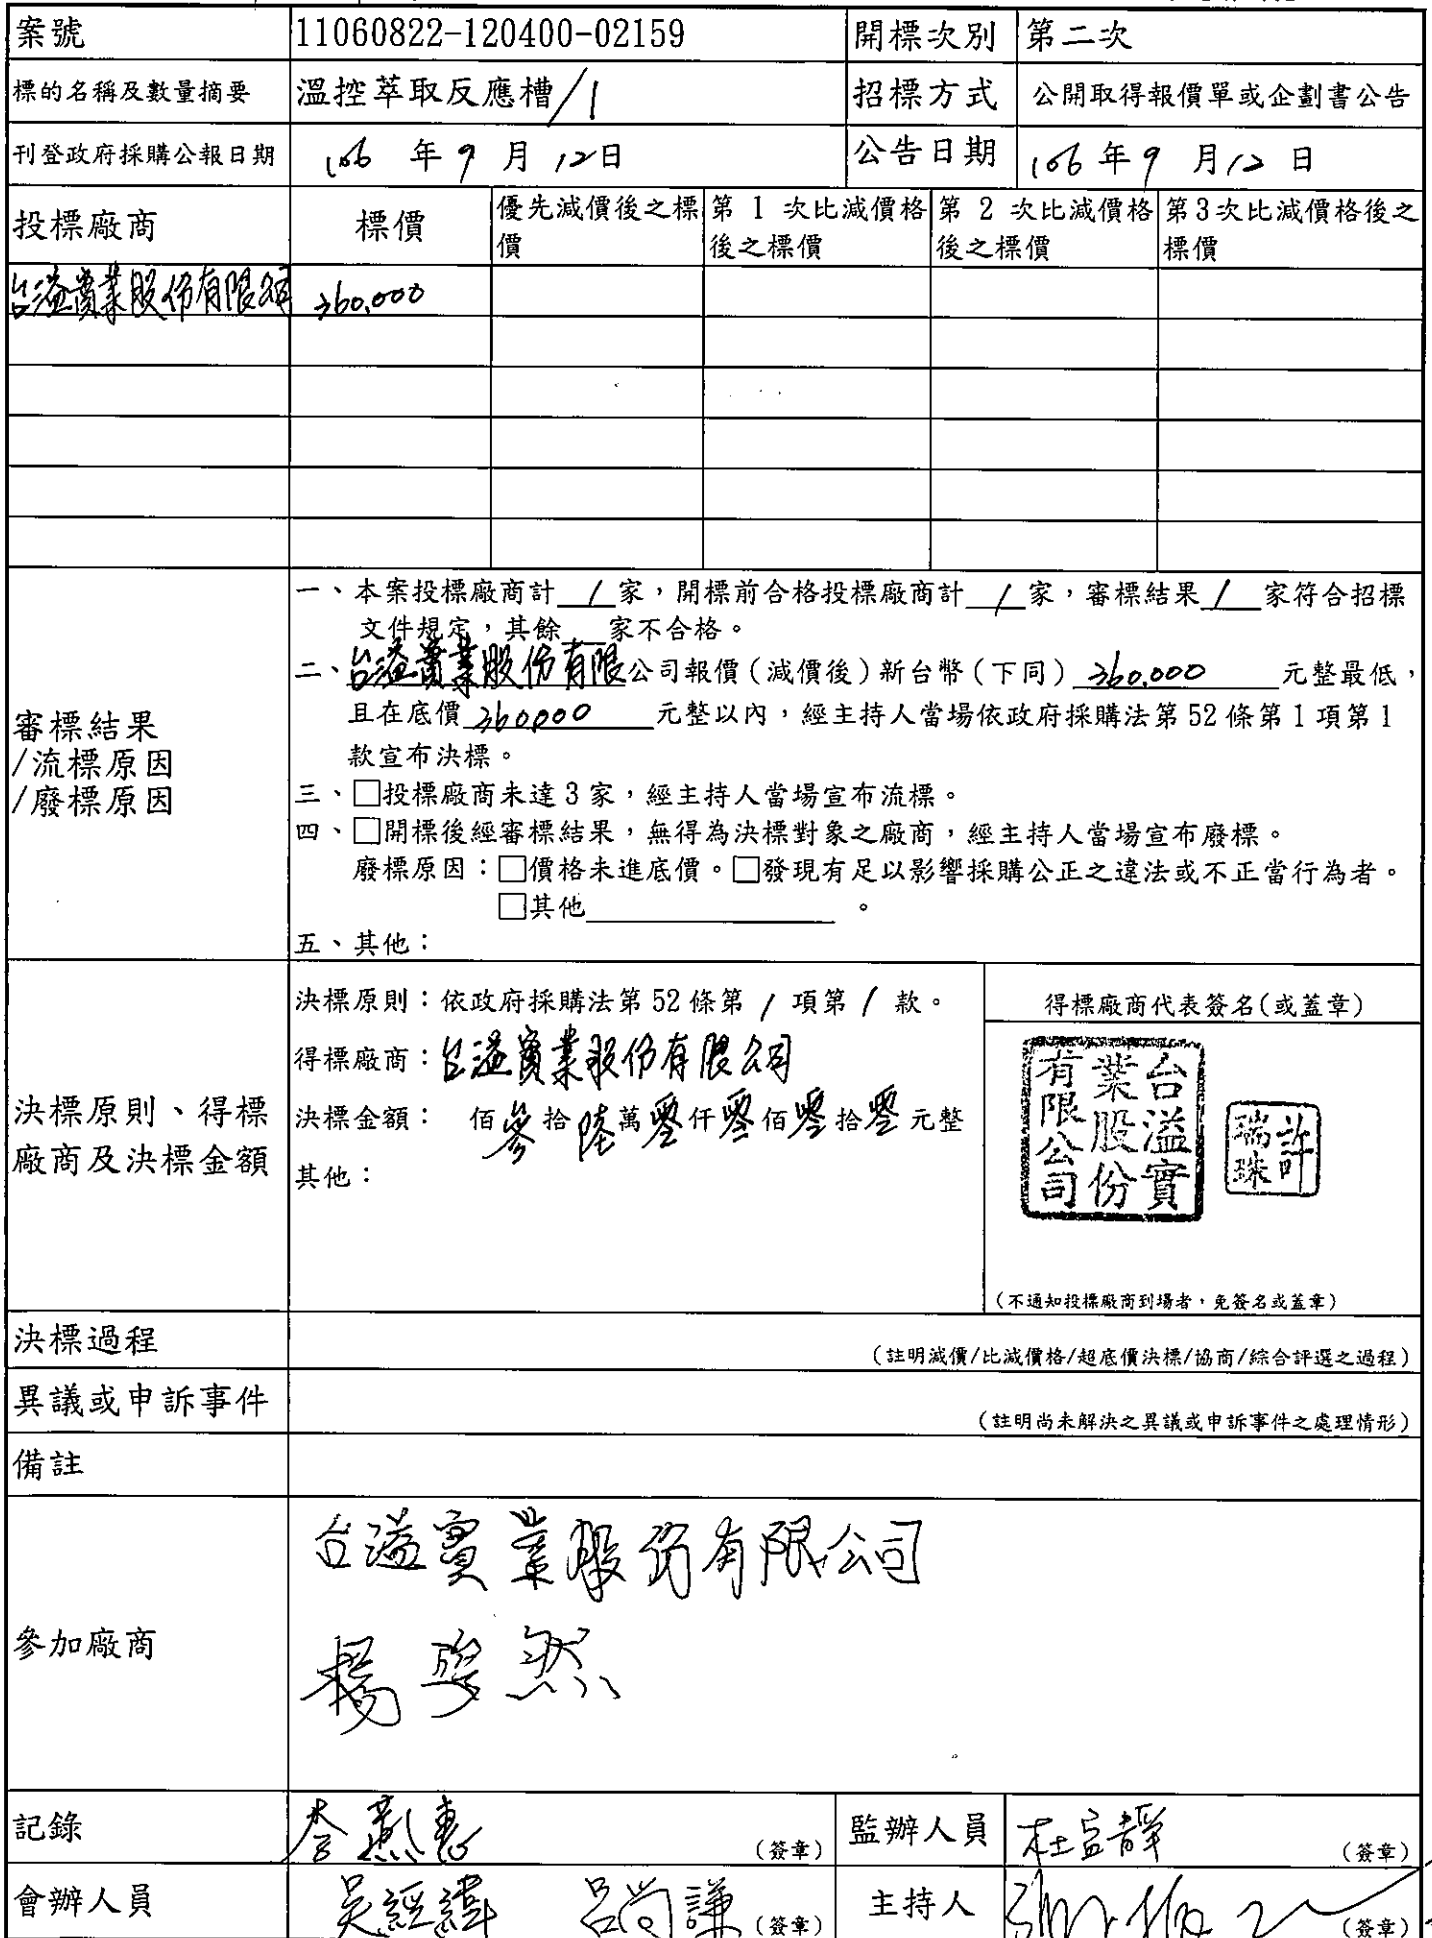 案號 11060822-120400-02159 開標次別 第二次
標的名稱及數量摘要 溫控萃取反應槽/1 招標方式 公開取得報價單或企劃書公告
刊登政府採購公報日期 106 年 9 月 12 日 公告日期 106 年 9 月 12 日
投標廠商 標價 優先減價後之標價 第 1 次比減價格後之標價 第 2 次比減價格後之標價 第3次比減價格後之標價
台溢實業股份有限公司 360,000
審標結果
/流標原因
/廢標原因
一、本案投標廠商計 1 家，開標前合格投標廠商計 1 家，審標結果 1 家符合招標
文件規定，其餘 家不合格。
二、台溢實業股份有限公司報價(減價後)新台幣(下同) 360,000 元整最低，
且在底價 360,000 元整以內，經主持人當場依政府採購法第 52 條第 1 項第 1
款宣布決標。
三、□投標廠商未達 3 家，經主持人當場宣布流標。
四、□開標後經審標結果，無得為決標對象之廠商，經主持人當場宣布廢標。
廢標原因：□價格未進底價。□發現有足以影響採購公正之違法或不正當行為者。
□其他 。
五、其他：
決標原則、得標
廠商及決標金額
決標原則：依政府採購法第 52 條第 1 項第 1 款。
得標廠商：台溢實業股份有限公司
決標金額： 佰參拾陸萬零仟零佰零拾零元整
其他：
得標廠商代表簽名(或蓋章)
台溢實業股份有限公司
許瑞珠
(不通知投標廠商到場者，免簽名或蓋章)
決標過程 (註明減價/比減價格/超底價決標/協商/綜合評選之過程)
異議或申訴事件 (註明尚未解決之異議或申訴事件之處理情形)
備註
參加廠商
台溢實業股份有限公司
記錄 (簽章) 監辦人員 (簽章)
會辦人員 吳經緯 呂尚謙 (簽章) 主持人 (簽章)